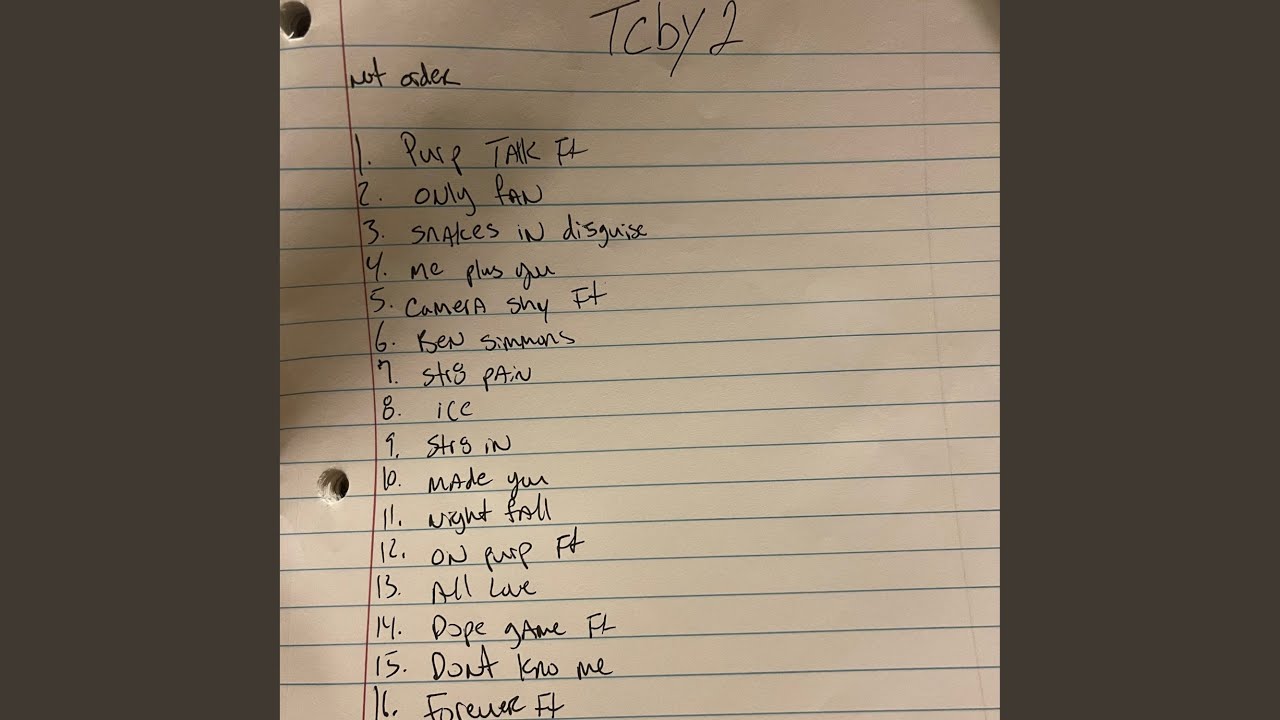 Tcby 2
Not order
1. Purp Talk Ft
2. Only fan
3. Snakes in disguise
4. Me plus you
5. Camera shy Ft
6. Ben Simmons
7. Str8 pain
8. ice
9. Str8 in
10. Made you
11. Night fall
12. On purp Ft
13. All Love
14. Dope game Ft
15. Dont kno me
16. Forever Ft